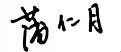 蒲仁月